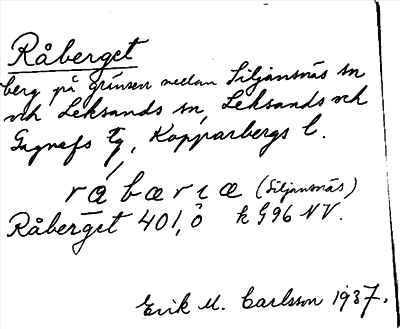 Råberget
berg på gränsen mellan Siljansnäs sn
och Leksands sn, Leksands och
Gagnefs tg, Kopparbergs l.
råbærıæ (Siljansnäs)
Råberget 401,0 k G96 NV.
Erik M. Carlsson 1937.